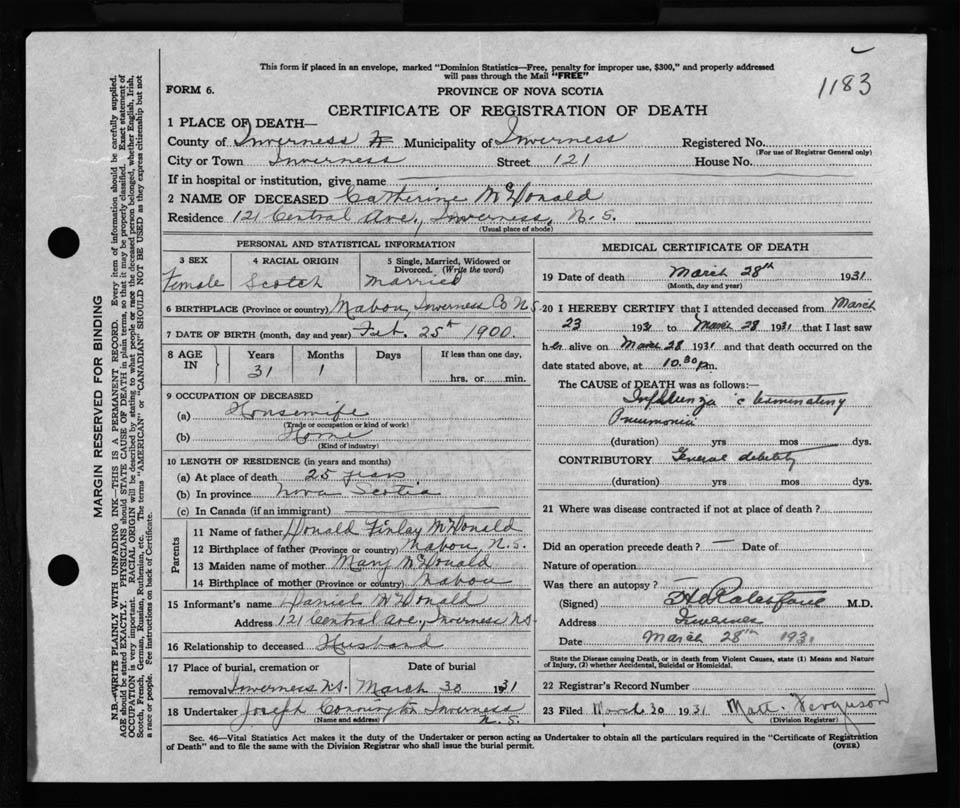 This form if placed in an envelope, marked "Dominion Statistics—Free, penalty for improper use, $300," and properly addressed
will pass through the Mail "FREE"
1183
FORM 6.
PROVINCE OF NOVA SCOTIA
CERTIFICATE OF REGISTRATION OF DEATH
1 PLACE OF DEATH—
County of Inverness Municipality of Inverness Registered No.
(For use of Registrar General only)
City or Town Inverness Street 121 House No.
If in hospital or institution, give name
2 NAME OF DECEASED Catherine McDonald
Residence 121 Central Ave., Inverness, N.S.
(Usual place of abode)
PERSONAL AND STATISTICAL INFORMATION
3 SEX 4 RACIAL ORIGIN 5 Single, Married, Widowed or
Divorced. (Write the word)
Female Scotch Married
6 BIRTHPLACE (Province or country) Mabou, Inverness Co N.S.
7 DATE OF BIRTH (month, day and year) Feb. 25th 1900.
8 AGE IN Years Months Days If less than one day,
31 1 hrs. or min.
9 OCCUPATION OF DECEASED
(a) Housewife
(Trade or occupation or kind of work)
(b) Home
(Kind of industry)
10 LENGTH OF RESIDENCE (in years and months)
(a) At place of death 25 years
(b) In province Nova Scotia
(c) In Canada (if an immigrant)
Parents
11 Name of father Donald Finlay McDonald
12 Birthplace of father (Province or country) Mabou, N.S.
13 Maiden name of mother Mary McDonald
14 Birthplace of mother (Province or country) Mabou
15 Informant's name Daniel McDonald
Address 121 Central Ave., Inverness N.S.
16 Relationship to deceased Husband
17 Place of burial, cremation or Date of burial
removal Inverness N.S. March 30 1931
18 Undertaker Joseph Inverness
(Name and address) N.S.
MEDICAL CERTIFICATE OF DEATH
19 Date of death March 28th 1931
(Month, day and year)
20 I HEREBY CERTIFY that I attended deceased from March
23 1931 to March 28 1931 that I last saw
her alive on March 28 1931 and that death occurred on the
date stated above, at 10.30 pm.
The CAUSE OF DEATH was as follows:—
Influenza c terminating
Pneumonia
(duration) yrs mos dys.
CONTRIBUTORY General debility
(duration) yrs mos dys.
21 Where was disease contracted if not at place of death?
Did an operation precede death? — Date of
Nature of operation
Was there an autopsy?
(Signed) M.D.
Address Inverness
Date March 28th 1931
State the Disease causing Death, or in death from Violent Causes, state (1) Means and Nature
of Injury, (2) whether Accidental, Suicidal or Homicidal.
22 Registrar's Record Number
23 Filed March 30 1931 Matt. Ferguson
(Division Registrar)
Sec. 46—Vital Statistics Act makes it the duty of the Undertaker or person acting as Undertaker to obtain all the particulars required in the "Certificate of Registration
of Death" and to file the same with the Division Registrar who shall issue the burial permit. (OVER)
MARGIN RESERVED FOR BINDING
N.B.—WRITE PLAINLY WITH UNFADING INK—THIS IS A PERMANENT RECORD. Every item of information should be carefully supplied.
AGE should be stated EXACTLY. PHYSICIANS should STATE CAUSE OF DEATH in plain terms, so that it may be properly classified. Exact statement of
OCCUPATION is very important. RACIAL ORIGIN will be described by stating to what people or race the deceased person belonged, whether English, Irish,
Scotch, French, German, Russian, Ruthenian, etc. The terms "AMERICAN" or "CANADIAN" SHOULD NOT BE USED as they express citizenship but not
a race or people. See instructions on back of Certificate.